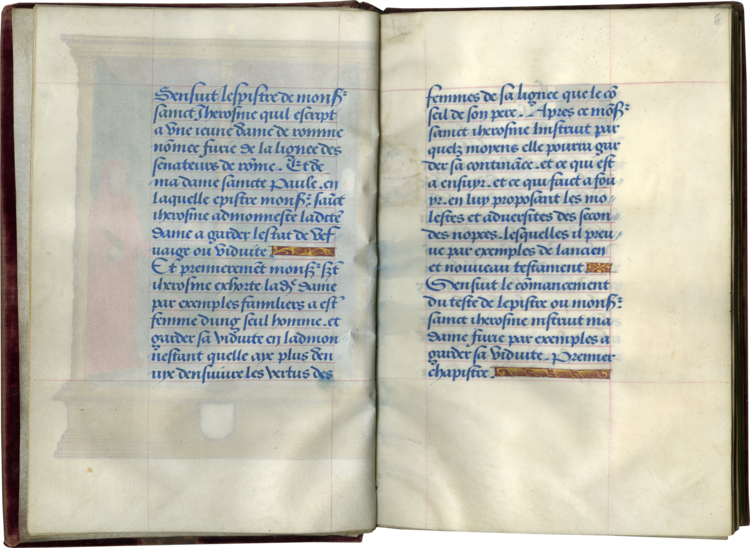 Sensuit lespistre de monsr
sainct iherosme quil escript
a vne ieune dame de romme
nõmee furie de la lignee des
senateurs de rõme. Et de
ma dame saincte Paule. en
laquelle epistre monsr. sãict
iherosme admonneste ladcte
dame a garder lestat de vef
uaige ou viduite
Et premierement monsr. sct
iherosme exhorte lade. dame
par exemples familiers a est
femme dung seul homme. et
garder sa viduite en ladmon
nestant quelle aye plus den
uye densuiure les vertus des
femmes de sa lignee que le cõ
seil de son pere. Apres ce mõsr
sainct iherosme Instruit par
quelz moyens elle pourra gar
der sa continãce. et ce qui est
a ensuyr. et ce qui faict a fou
yr. en luy proposant les mo
lestes et aduersites des secon
des nopces. lesquelles il preu
ue par exemples de lancien
et nouueau testament
Sensuit le cõmancement
du texte de lepistre ou monsr
sainct iherosme instruit ma
dame furie par exemples a
garder sa viduite. Premier
chapistre.